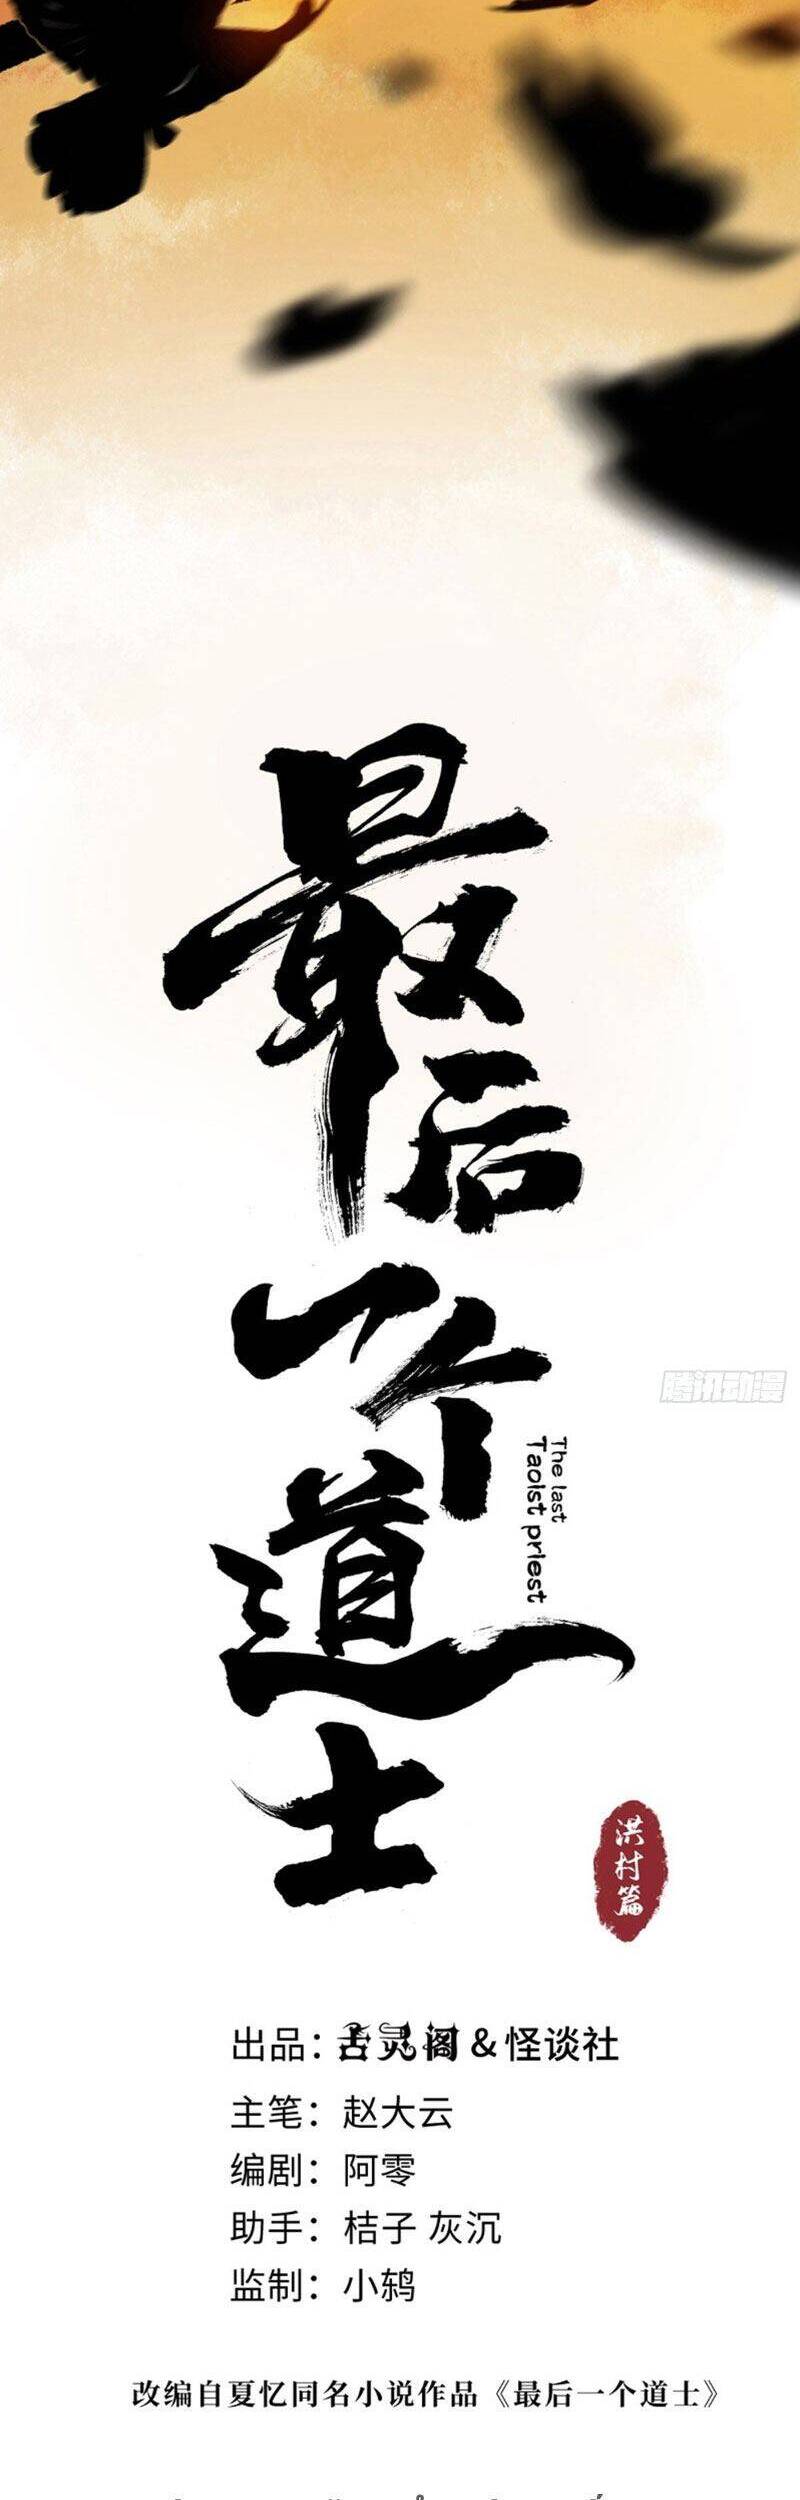 最后一个道士
The last
Taoist priest
腾讯动漫
洪村篇
出品：古灵阁&怪谈社
主笔：赵大云
编剧：阿零
助手：桔子 灰沉
监制：小鸫
改编自夏忆同名小说作品《最后一个道士》